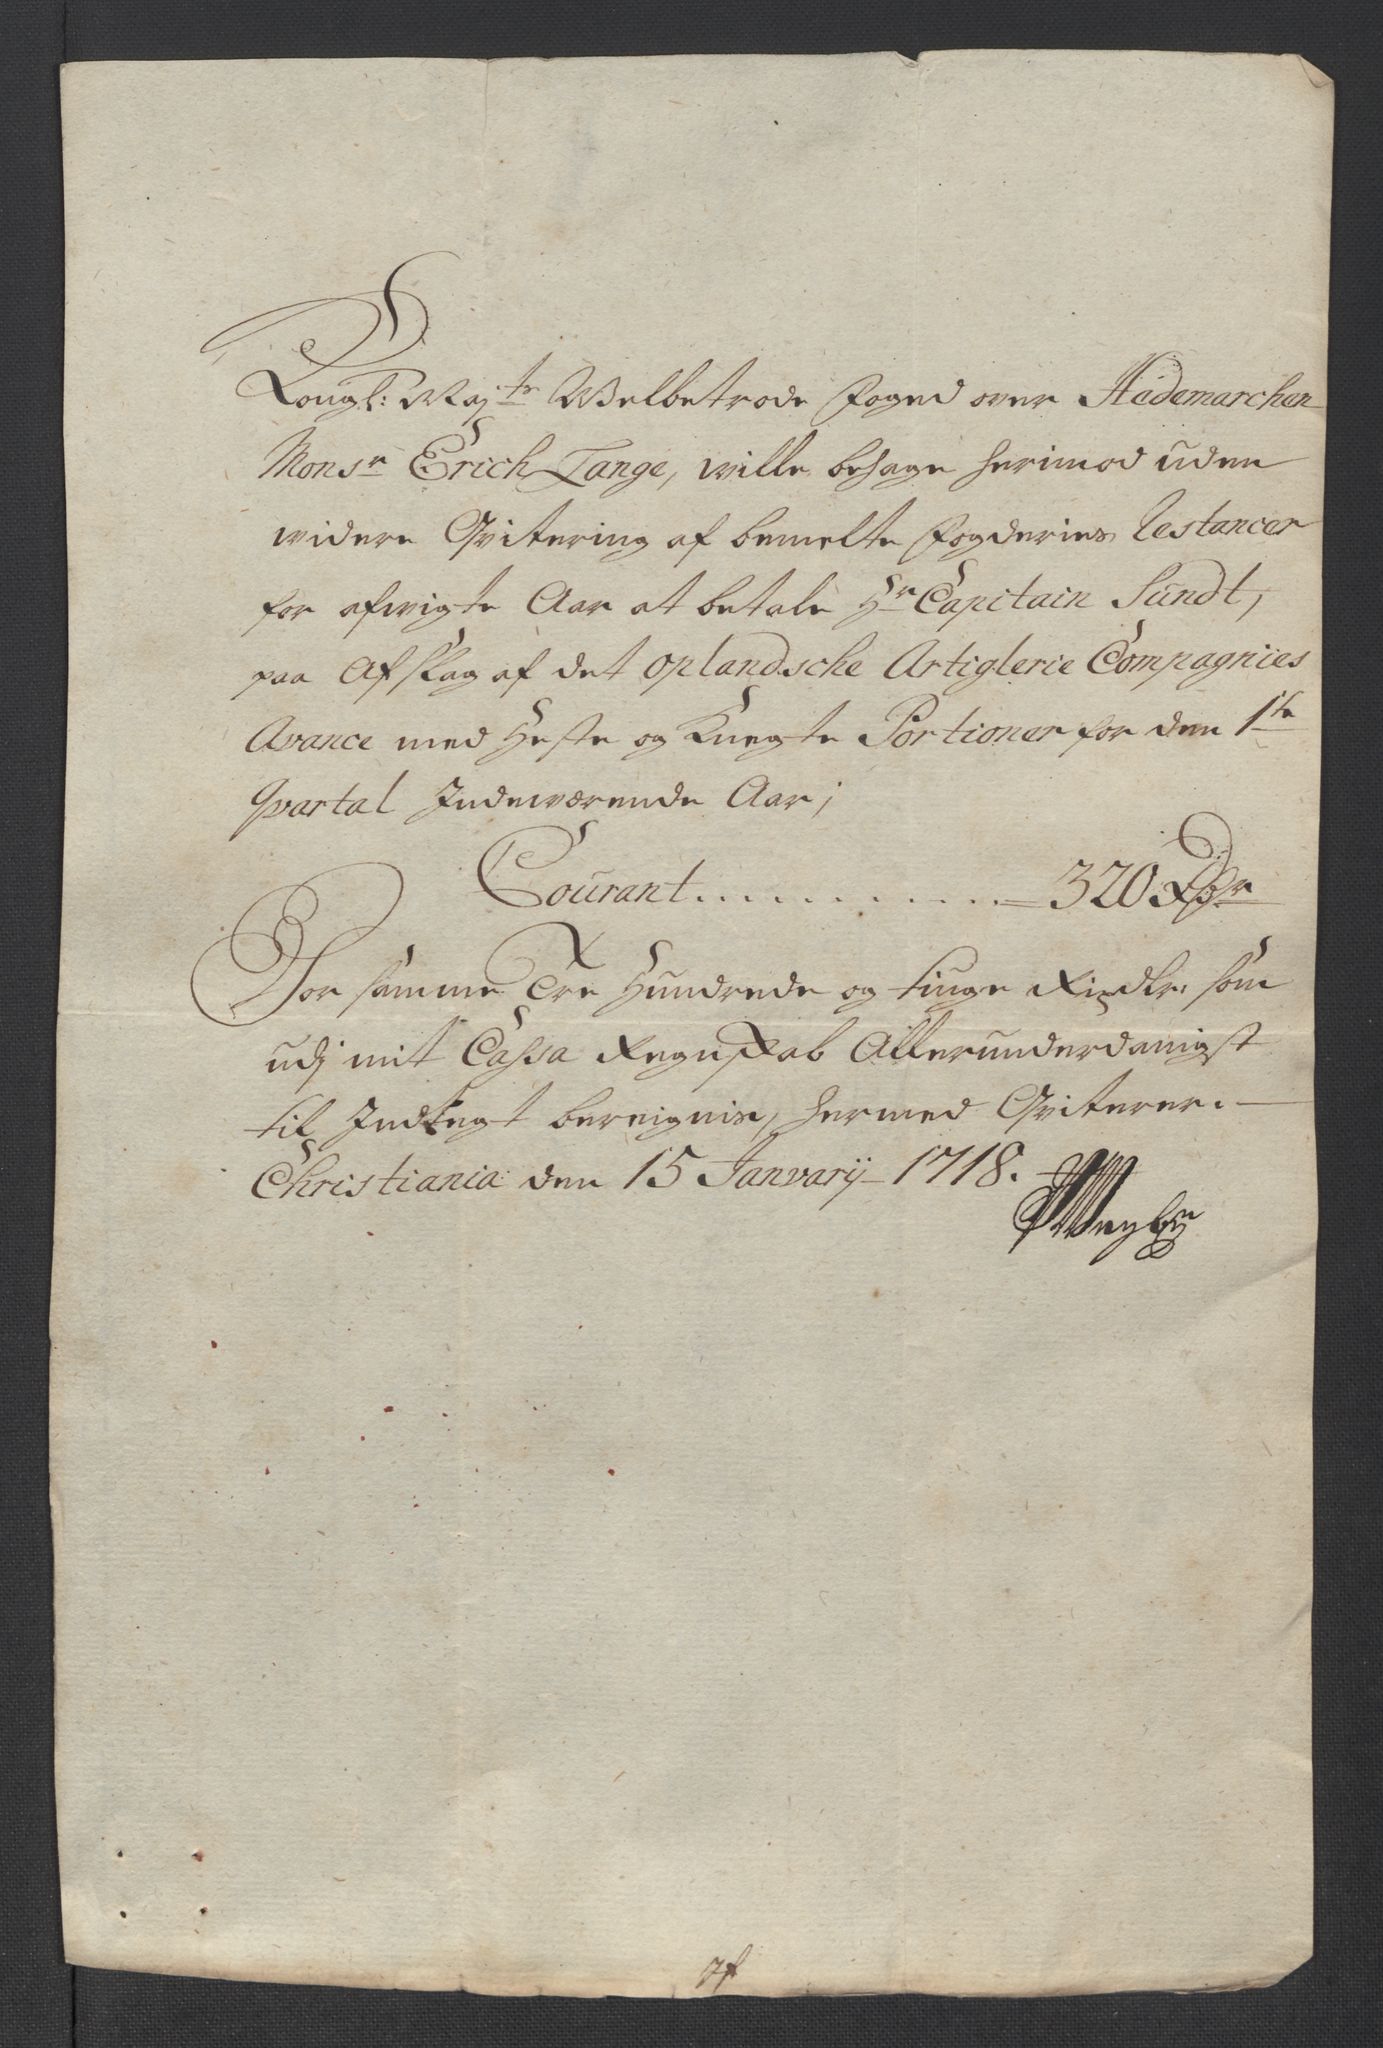 Kongl: Maj:ts Welbetrode foged over Hedemarchen
Monsr Erich Lange, wille behage herimod uden
widere Qvitering af bemelte fogderies Restancer
for afwigte Aar at betale Hr Capitain Sundt,
paa Afslag af det oplandsche Artiglerie Compagnies
Avance med Heste og Knegte Portioner for den 1te
Qvartal Indeværende Aar;
Courant.......... = 320 Rdr
For samme Tre Hundrede og tiuge Rixdlr: som
udj mit Cassa Regnskab Allerunderdanigst
til Indtegt bereignis, hermed Qviterer.
Christiania den 15 Janvarij 1718.